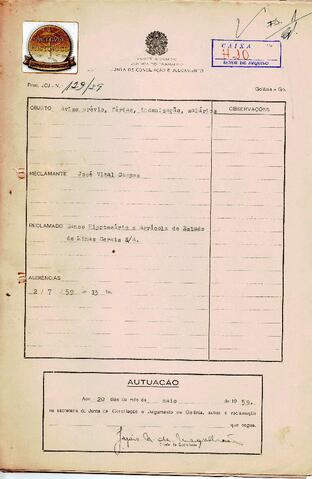 PODER JUDICIÁRIO
JUSTIÇA DO TRABALHO
JUNTA DE CONCILIAÇÃO E JULGAMENTO
CAIXA
H-10
SETOR DE ARQUIVO
Proc. JCJ - N.º 129/59
Goiânia - Go.
OBJETO
Aviso prévio, férias, indenização, salários
OBSERVAÇÕES
RECLAMANTE
José Vidal Campos
RECLAMADO
Banco Hipotecário e Agrícola do Estado
de Minas Gerais S/A.
AUDIÊNCIAS
2/7/59 - 13 hs.
AUTUAÇÃO
Aos 20 dias do mês de maio de 1959,
na secretaria da Junta de Conciliação e Julgamento de Goiânia, autuo a reclamação
que segue.
Chefe de Secretaria